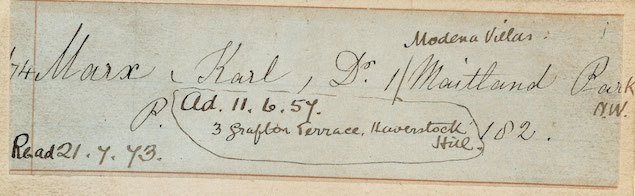 Modena Villas
74 Marx Karl, Dr. 1 Maitland Park
N.W.
P. Ad. 11. 6. 57.
3 Grafton Terrace, Haverstock Hill. 182.
Read 21. 7. 73.